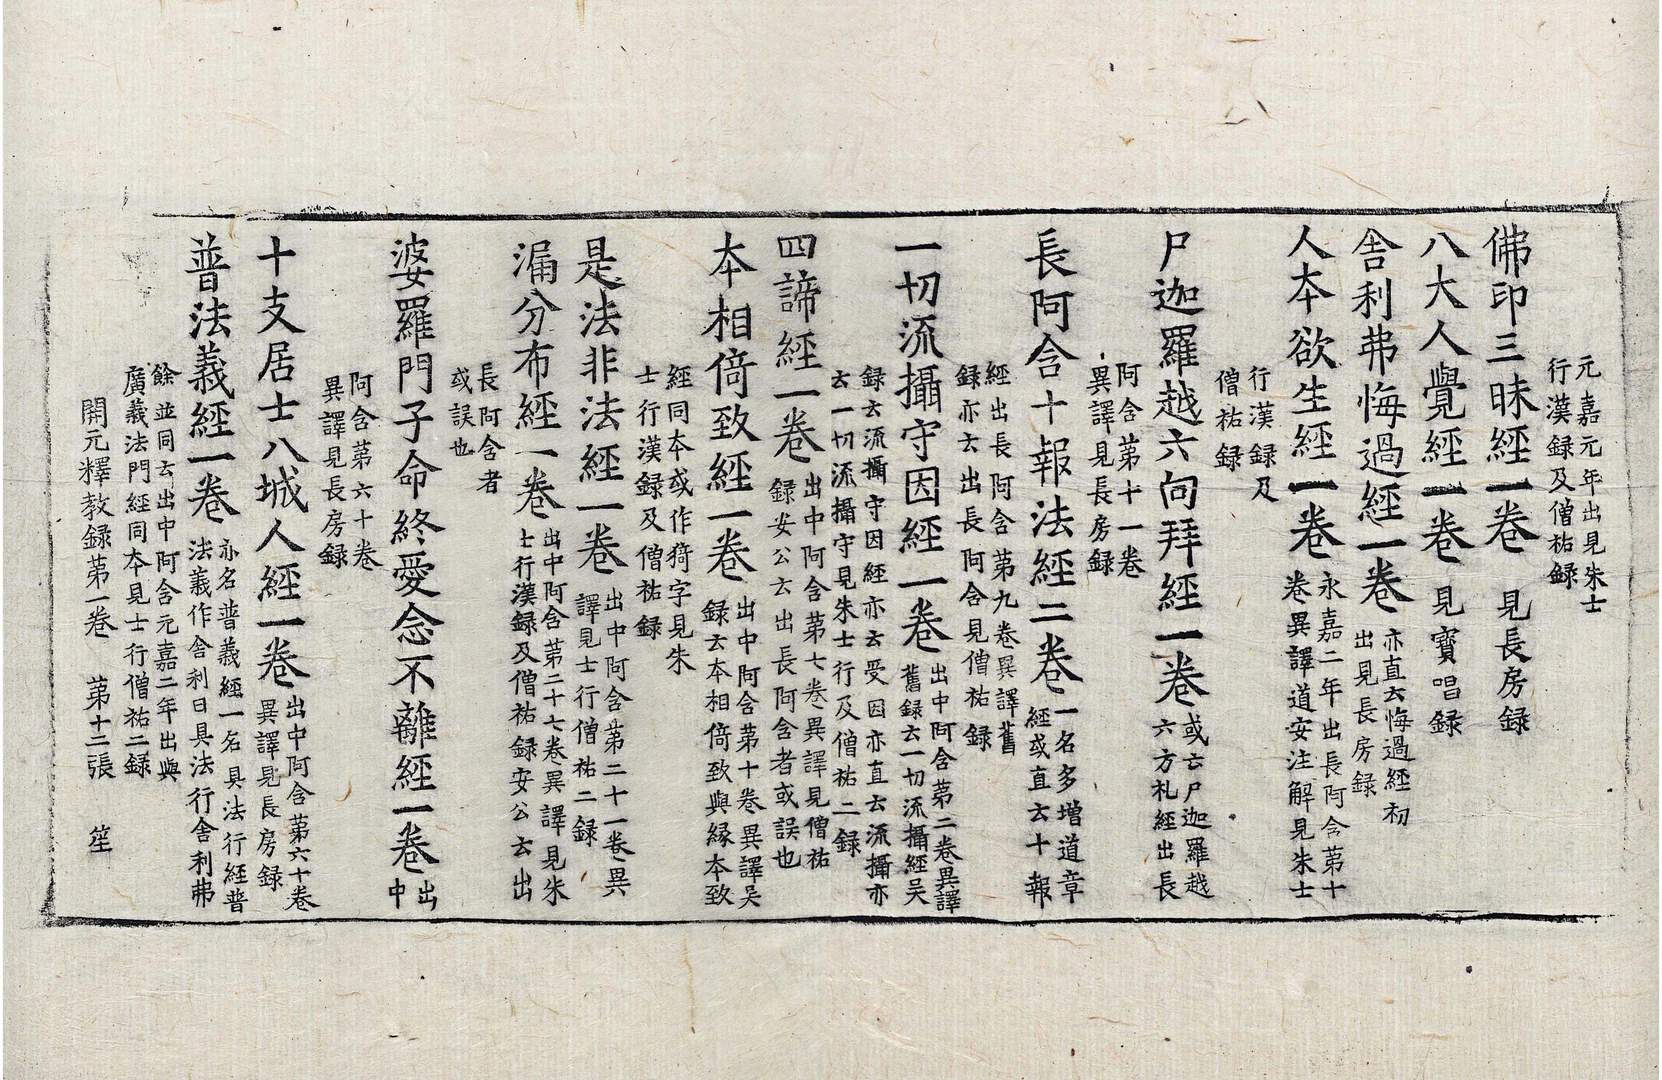 元嘉元年出見朱士
行漢録及僧祐録
佛印三昧經一卷 見長房録
八大人覺經一卷 見寶唱録
舎利弗悔過經一卷 亦直云悔過經初
出見長房録
人本欲生經一卷 永嘉二年出長阿含第十
卷異譯道安注解見朱士
行漢録及
僧祐録
尸迦羅越六向拜經一卷 或云尸迦羅越
六方礼經出長
阿含第十一卷
異譯見長房録
長阿含十報法經二卷 一名多増道章
經或直云十報
經出長阿含第九卷異譯舊
録亦云出長阿含見僧祐録
一切流攝守因經一卷 出中阿含第二卷異譯
舊録云一切流攝經吴
録云流攝守因經亦云受因亦直云流攝亦
云一切流攝守見朱士行及僧祐二録
四諦經一卷 出中阿含第七卷異譯見僧祐
録安公云出長阿含者或誤也
本相倚致經一卷 出中阿含第十卷異譯吴
録云本相倚致與縁本致
經同本或作猗字見朱
士行漢録及僧祐録
是法非法經一卷 出中阿含第二十一卷異
譯見士行僧祐二録
漏分布經一卷 出中阿含第二十七卷異譯見朱
士行漢録及僧祐録安公云出
長阿含者
或誤也
婆羅門子命終愛念不離經一卷 出
中
阿含第六十卷
異譯見長房録
十支居士八城人經一卷 出中阿含第六十卷
異譯見長房録
普法義經一卷 亦名普義經一名具法行經普
法義作舎利曰具法行舎利弗
餘並同云出中阿含元嘉二年出與
廣義法門經同本見士行僧祐二録
開元釋教録第一卷 第十二張 笙